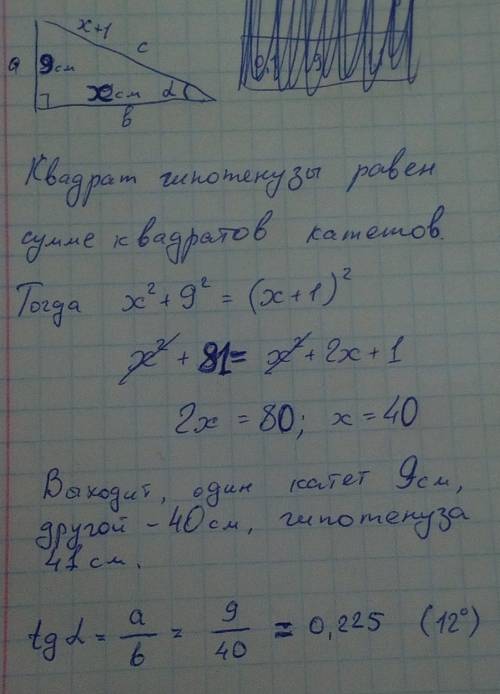 x+1
c
a
9см
xсм
α
b
Квадрат гипотенузы равен
сумме квадратов катетов.
Тогда x² + 9² = (x+1)²
x² + 81 = x² + 2x + 1
2x = 80; x = 40
Выходит, один катет 9см,
другой - 40см, гипотенуза
41см.
tg α = a/b = 9/40 = 0,225 (12°)